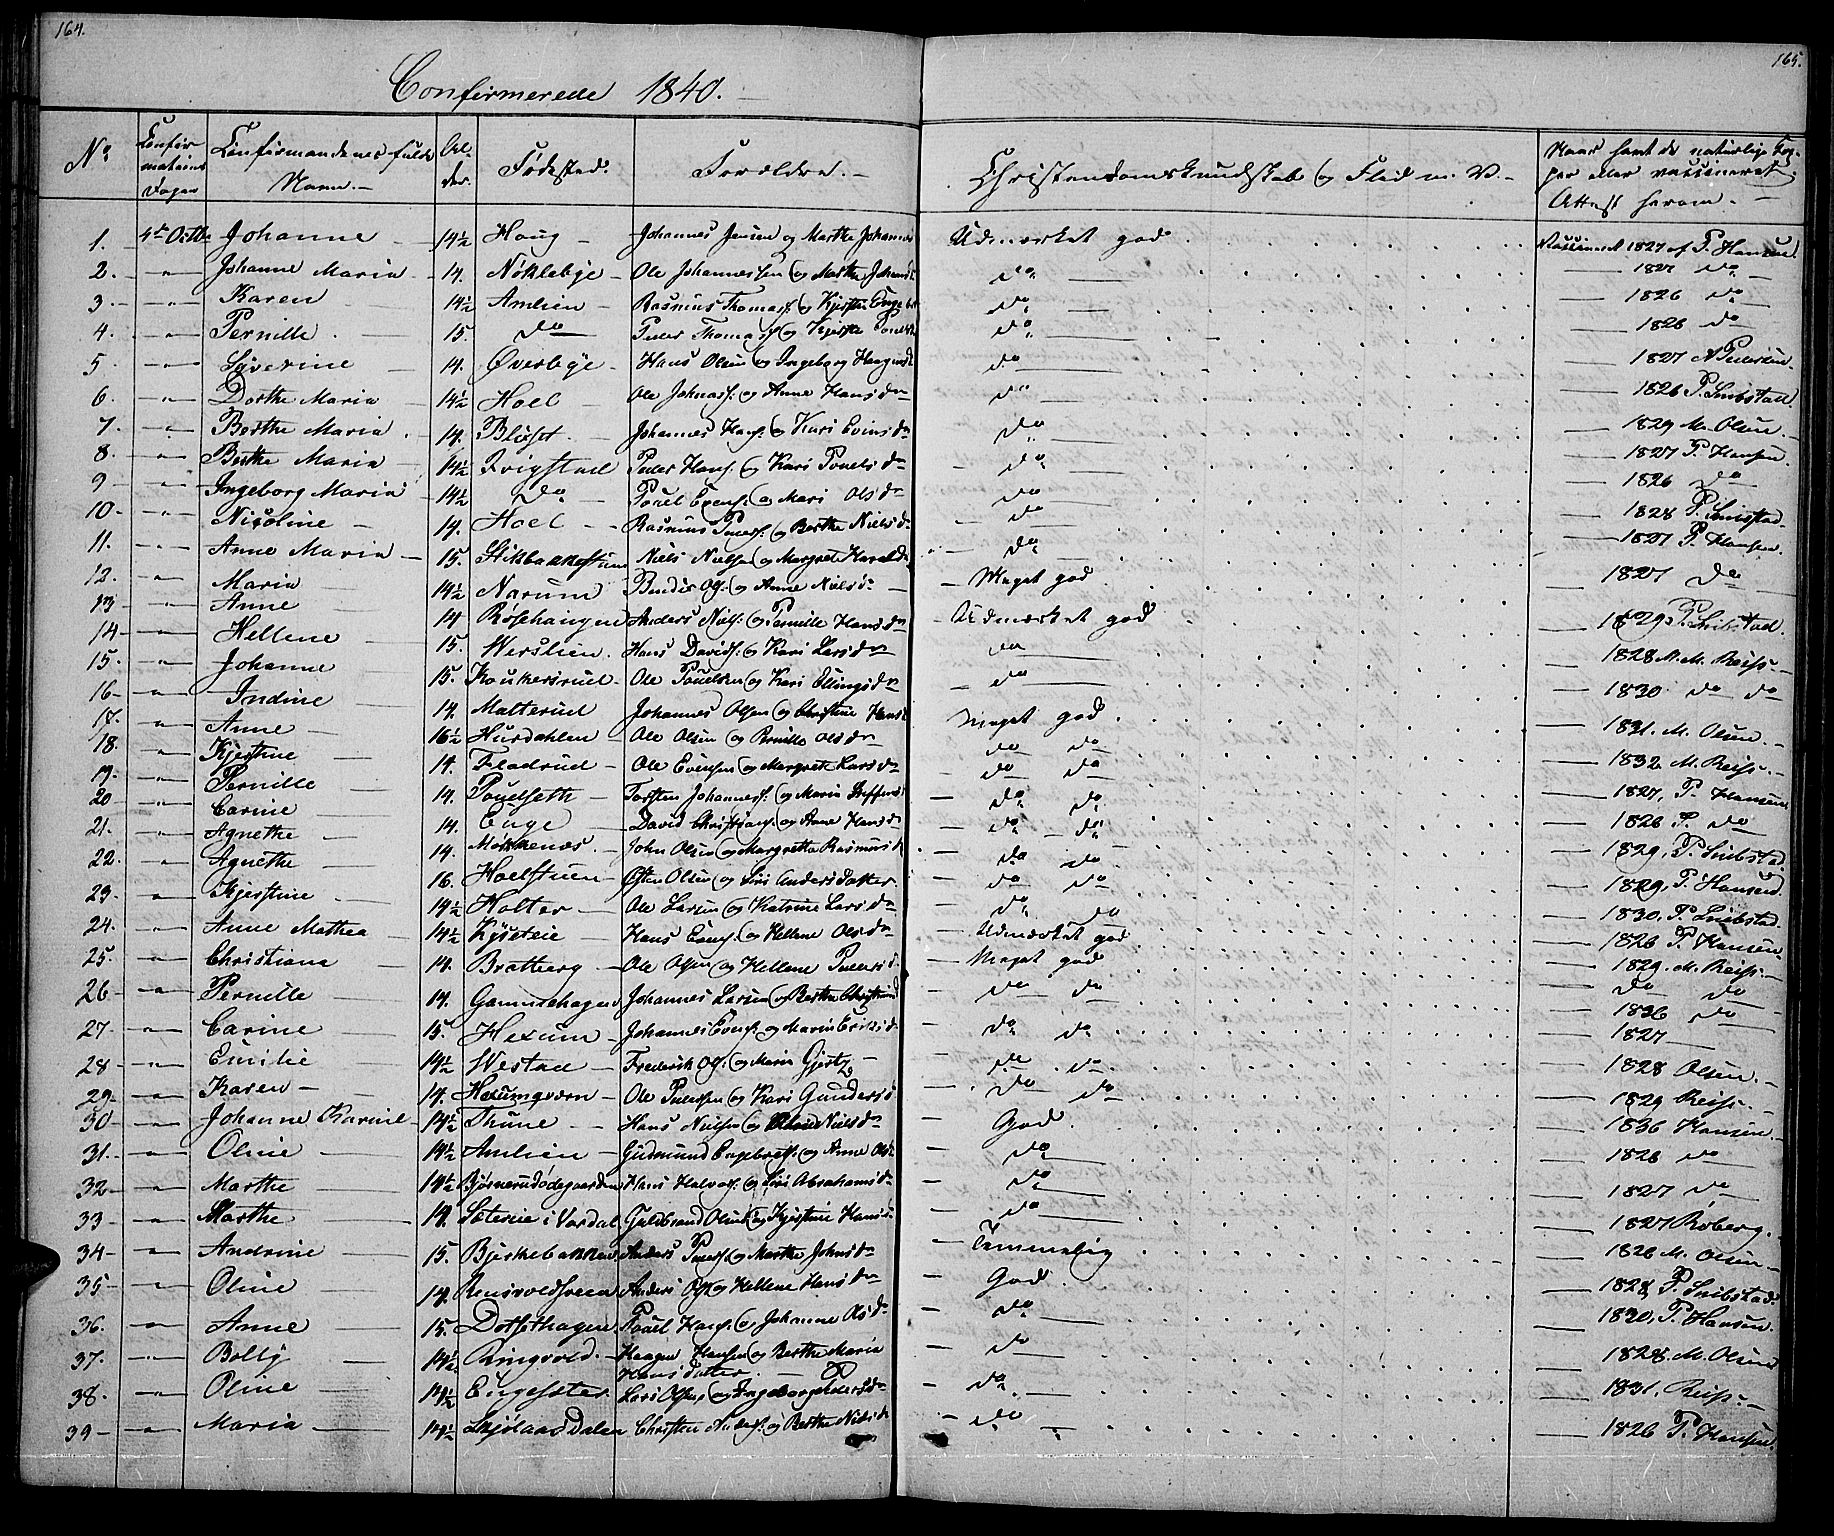 164.
165.
Confirmerede 1840.
No Confirmations Dagen Confirmandernes fulde Navn. Alder. Fødested. Forældre. Christendomskundskab og Flid m. V. Naar havt de naturlige Kopper eller vaccineret Attest herom.
1. 4de Octbr Johanne 14½ Houg Johannes Jensen og Marthe Johannes Udmærket god Vaccineret 1827 af P. Hansen
2. " Johanne Maria 14. Nøklebye Ole Johannessen og Marthe Johans do 1827 do
3. " Karen 14½ Amlien Rasmus Thomass. og Kjersti Engebr do 1826 do
4. " Pernille 15. do Peder Thomass. og Kjersti do 1826 do
5. " Syverine 14. Øverbye Hans Olsen og Ingeborg Haagensd do 1827 N Pedersen
6. " Dorthe Maria 14½ Hoel Ole Johnss. og Anne Hansdr do 1826 P. Snibstad.
7. " Berthe Maria 14. Blixet Johannes Hans. og Kari Evensdr do 1829 M. Olsen.
8. " Berthe Maria 14½ Ivigstad Peder Hans. og Kari Pouelsdr do 1827 P. Hansen.
9. " Ingeborg Maria 14½ do Pouel Evens. og Mari Olsdr do 1826 do
10. " Nicoline 14. Hoel Rasmus Peders. og Berthe Nielsdr do 1828 P. Snibstad.
11. " Anne Maria 15. Stikbakkestuen Niels Nielsen og Margrete Haralds do 1827 P. Hansen.
12. " Maria 14½ Narum Bendix Ols. og Anne Nielsdr Meget god 1827 do
13 " Anne 14 Røsehaugen Anders Niels. og Pernille Hansdr Udmærket god 1829 P. Snibstad.
14 " Hellene 15. Werslien. Hans Davids. og Kari Larsdr do 1828 M. M. Reiss.
15. " Johanne 15. Koukersrud Ole Pouelsen og Kari Ellingsdr do 1830 do do
16 " Indine 14. Matterud Johannes Olsen og Christine Hans Meget god 1831. M. Olsen.
17. " Anne 16½ Hurdahlen Ole Olsen og Pernille Olsdr do do 1832 M. Reiss.
18. " Kjerstine 14. Fladrud Ole Evensen og Margrete Larsdr do do 1827, P. Hansen
19. " Pernille 14. Pouelseth Torsten Johannes. og Maria Steffens do do 1826 P. do
20 " Carine 14. Enge David Christians. og Anne Hansdr do do 1829, P. Snibstad
21. " Agnethe 14. Møkkenæs. John Olsen og Margrethe Rasmusd do do 1829, P. Hansen
22. " Agnethe 16. Hoelstuen Osten Olsen og Siri Andersdatter. do do 1830, P. Snibstad.
23. " Kjerstine 14½ Holter Ole Larsen og Katrine Larsdr do do 1826 P. Hansen
24. " Anne Mathea 14½ Kyseteie Hans Evens. og Hellene Olsdr Udmærket god 1829. M. Reiss.
25. " Christiane 14. Bratberg Ole Olsen og Hellene Pedersd. Meget god do do
26 " Pernille 14. Gammehagen Johannes Larsen og Berthe Christiansd do do 1826 do
27 " Carine 15. Hexum Johannes Evens. og Marin Eriksd. do do 1827
28 " Emilie 14½ Westad Frederik Ols. og Maria Gjertz do do. 1828 Olsen.
29. " Karen 14. Hexumqværn Ole Pedersen og Kari Gundersd do do 1829 Reiss.
30 " Johanne Karine 14½ Thune Hans Nielsen og Nielsdr God 1836 Hansen.
31. " Oline 14½ Amlien Gudmund Engebrets. og Anne Ols do 1828 do
32. " Marthe 14½ Bjørnerudødegaarden Hans Halvors. og Siri Abrahamsd. do 1827 do
33. " Marthe 14. Soteeie i Vardal Guldbrand Olsen og Kjerstine Hansd. do 1827 Roberg.
34 " Andrine 15. Bjerkebakken Anders Peders. og Marthe Johnsdr Temmelig 1826 M. Olsen
35 " Oline 14. Anders Ols. og Hellene Hansdr God. 1828 P. Snibstad
36. " Anne 15. Dotsethagen Pouel Hans. og Johanne Olsdr do 1820, P. Hansen.
37. " Bolly 14½ Ringvold. Haagen Hansen og Berthe Maria do 1828. M. Olsen
Hansdatter.
38. " Oline 14½ Engesæter. Lars Olsen og Ingeborg Pedersdr do. 1831. Reiss.
39 " Maria 14½ Skjølaasdalen Christen Anders. og Berthe Nielsd do 1826 P. Hansen